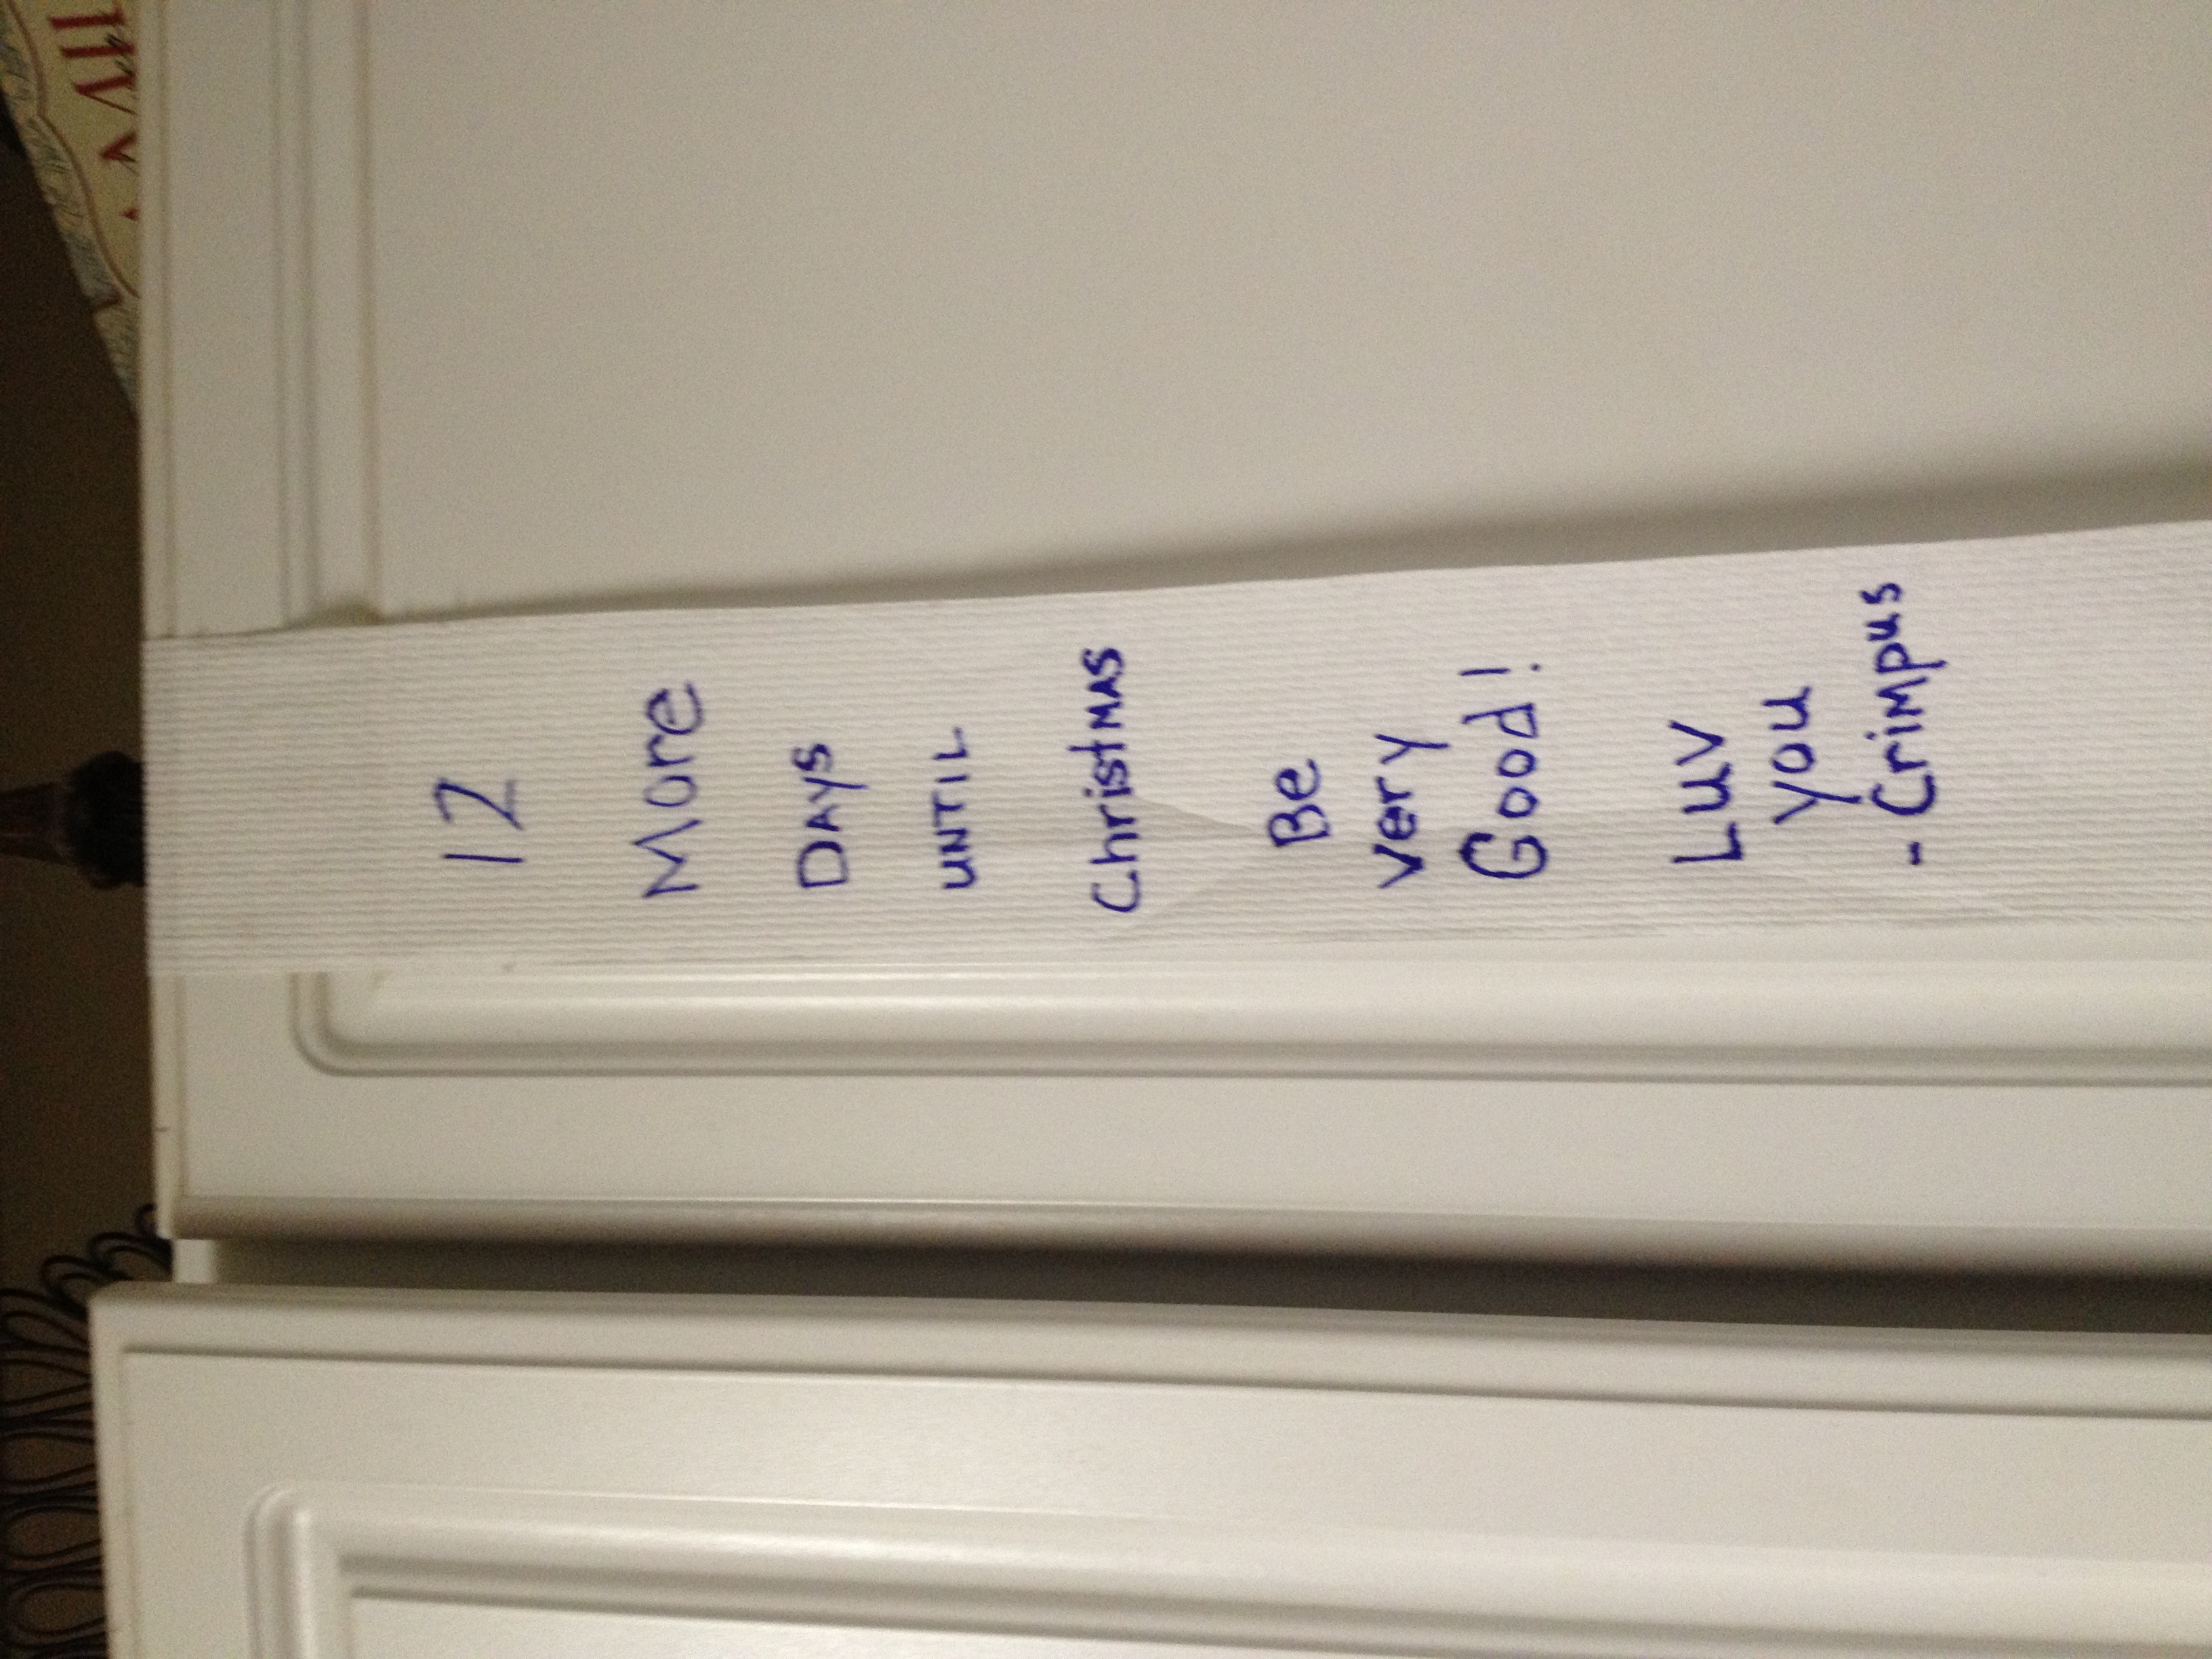 12
More
DAYS
UNTIL
ChristMAS
Be
Very
Good!
Luv
you
- Crimpus